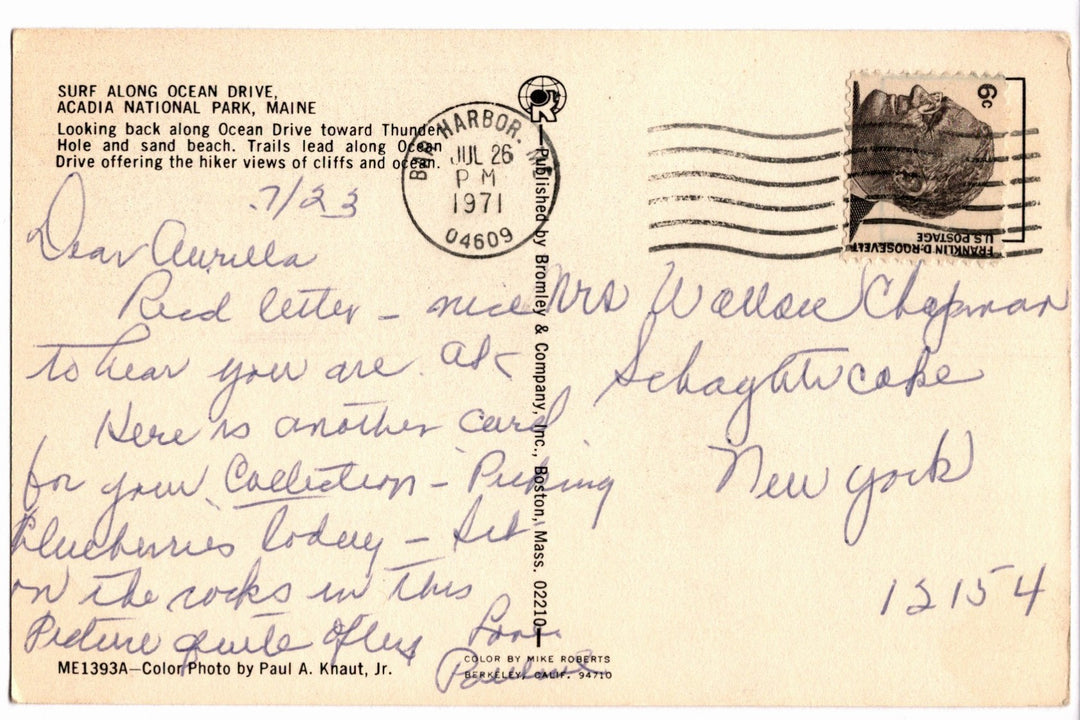 SURF ALONG OCEAN DRIVE,
ACADIA NATIONAL PARK, MAINE
Looking back along Ocean Drive toward Thunder
Hole and sand beach. Trails lead along Ocean
Drive offering the hiker views of cliffs and ocean.
BAR HARBOR, ME
JUL 26
PM
1971
04609
6c
FRANKLIN D. ROOSEVELT
U.S. POSTAGE
7/23
Dear Aurilla
Recd letter - nice
to hear you are ok
Here is another card
for your Collection - Picking
blueberries today - Sit
on the rocks in this
Picture quite often
Love
Pauline
Published by Bromley & Company, Inc., Boston, Mass. 02210
Mrs Wallace Chapman
Schaghticoke
New York
12154
ME1393A—Color Photo by Paul A. Knaut, Jr.
COLOR BY MIKE ROBERTS
BERKELEY, CALIF. 94710